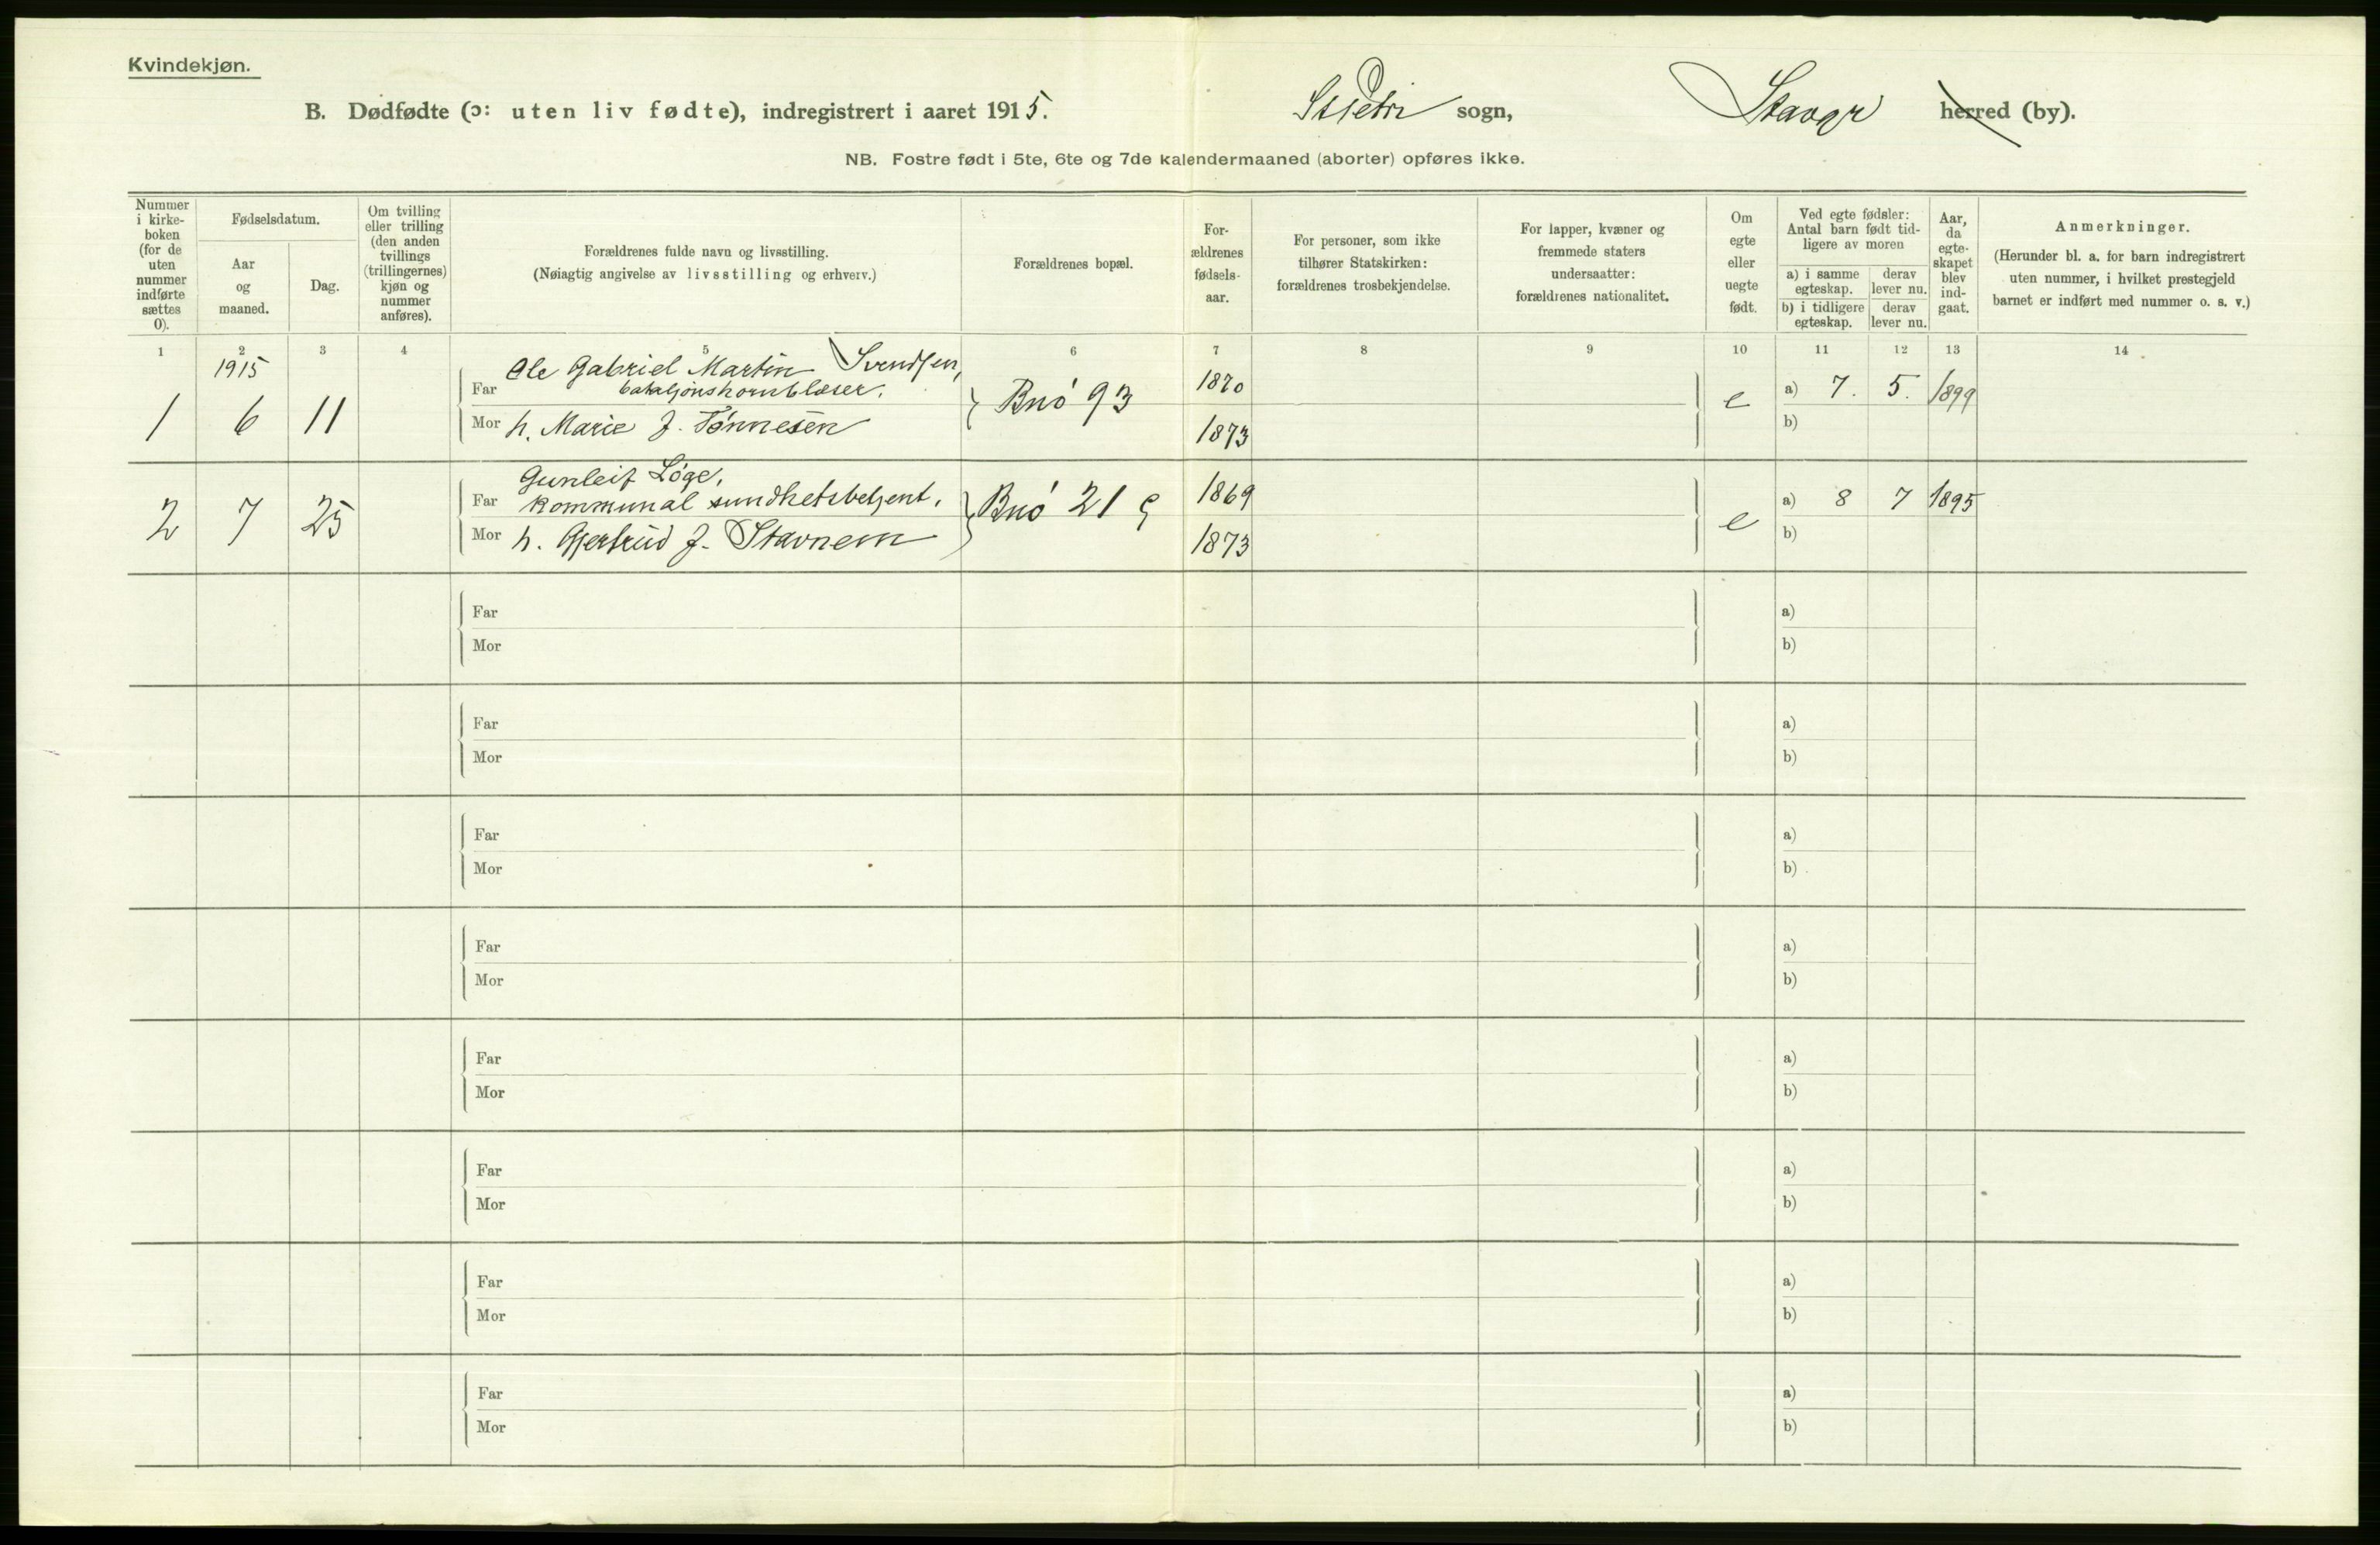 Kvindekjøn.
B. Dødfødte (ɔ: uten liv fødte), indregistrert i aaret 1915. St Petri sogn, Stavgr herred (by).
NB. Fostre født i 5te, 6te og 7de kalendermaaned (aborter) opføres ikke.
Nummer i kirke-boken (for de uten nummer indførte sættes 0).
Fødselsdatum.
Aar og maaned.
Dag.
Om tvilling eller trilling (den anden tvillings (trillingernes) kjøn og nummer anføres).
Forældrenes fulde navn og livsstilling.
(Nøiagtig angivelse av livsstilling og erhverv.)
Forældrenes bopæl.
For-ældrenes fødsels-aar.
For personer, som ikke tilhører Statskirken: forældrenes trosbekjendelse.
For lapper, kvæner og fremmede staters undersaatter: forældrenes nationalitet.
Om egte eller uegte født.
Ved egte fødsler: Antal barn født tid-ligere av moren
a) i samme egteskap.
derav lever nu.
b) i tidligere egteskap.
derav lever nu.
Aar, da egte-skapet blev ind-gaat.
Anmerkninger.
(Herunder bl. a. for barn indregistrert uten nummer, i hvilket prestegjeld barnet er indført med nummer o. s. v.)
1 2 3 4 5 6 7 8 9 10 11 12 13 14
1915
Ole Gabriel Martin Svendsen,
Far bataljonshornblæser.
1 6 11
Mor h. Marie f. Tönnesen
Bnö 93
1870
1873
e
a) 7. 5. 1899
b)
Gunleif Löge,
Far kommunal sundhetsbetjent.
2 7 25
Mor h. Gjertrud f. Stavnem
Bnö 21 c
1869
1873
e
a) 8 7 1895
b)
Far a)
Mor b)
Far a)
Mor b)
Far a)
Mor b)
Far a)
Mor b)
Far a)
Mor b)
Far a)
Mor b)
Far a)
Mor b)
Far a)
Mor b)